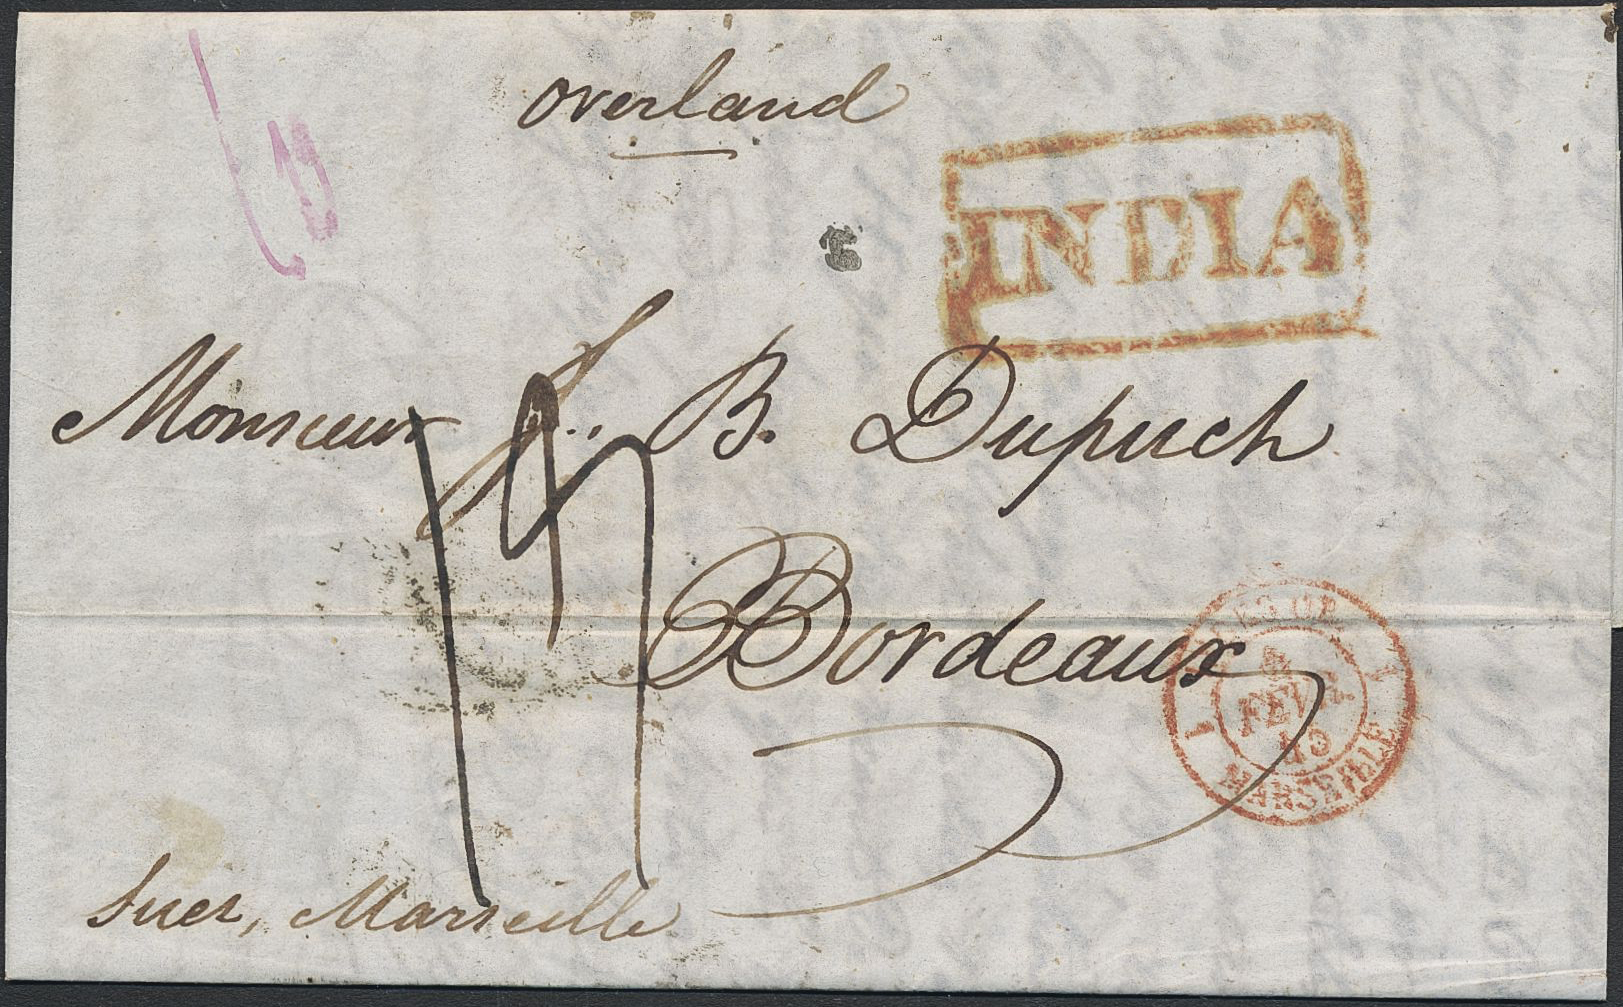 overland
INDIA
Monsieur J. B. Dupuch
Bordeaux
4
FEVR
45
MARSEILLE
Suez, Marseille